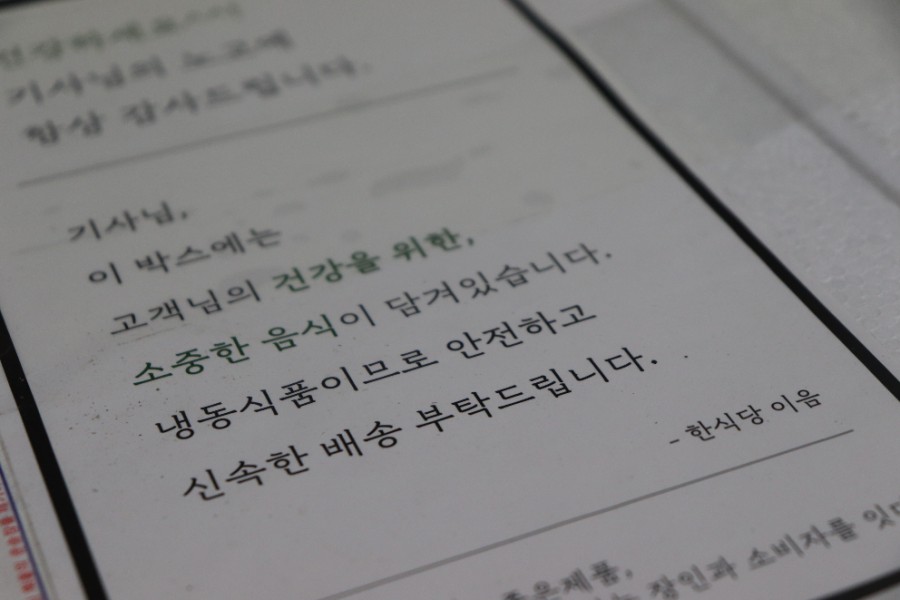 건강하세요
기사님의 노고에
항상 감사드립니다.
기사님,
이 박스에는
고객님의 건강을 위한,
소중한 음식이 담겨있습니다.
냉동식품이므로 안전하고
신속한 배송 부탁드립니다.
- 한식당 이음
좋은제품,
장인과 소비자를